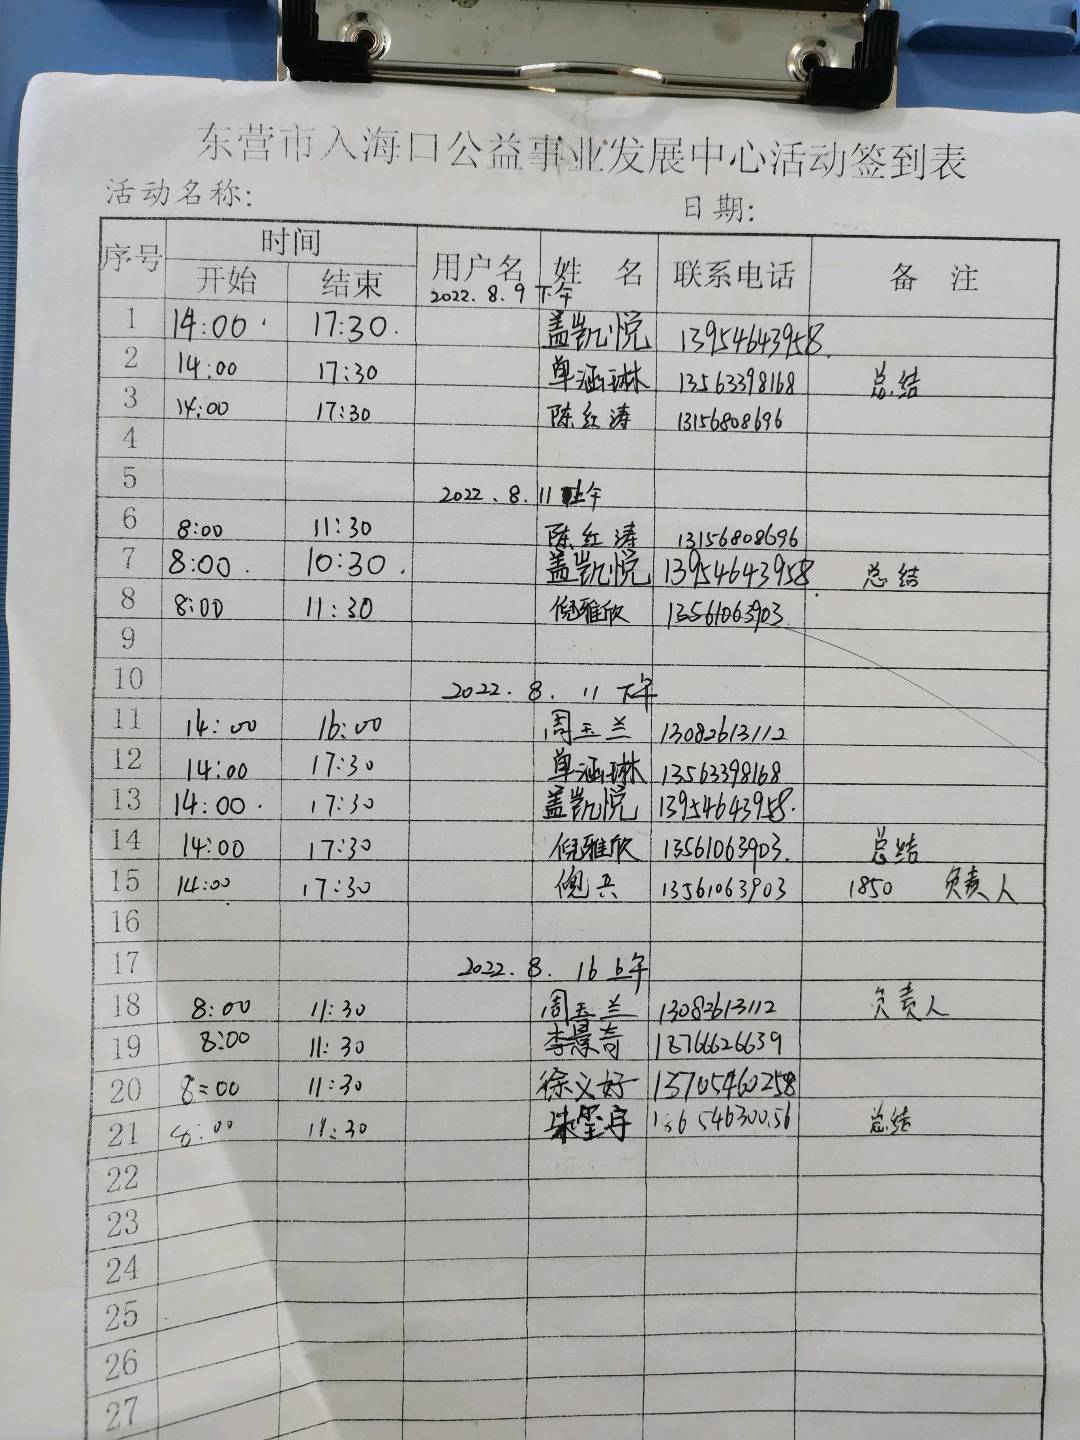 东营市入海口公益事业发展中心活动签到表
活动名称: 日期:
序号 时间 用户名 姓名 联系电话 备注
开始 结束
2022.8.9下午
1 14:00 17:30. 盖凯悦 13954643958.
2 14:00 17:30 单涵琳 13563398168 总结
3 14:00 17:30 陈红涛 13156808696
4
5 2022.8.11上午
6 8:00 11:30 陈红涛 13156808696
7 8:00. 10:30. 盖凯悦 13954643958. 总结
8 8:00 11:30 倪雅欣 13561063903.
9
10 2022.8.11下午
11 14:00 16:00 周玉兰 13082613112
12 14:00 17:30 单涵琳 13563398168
13 14:00. 17:30 盖凯悦 13954643958.
14 14:00 17:30 倪雅欣 13561063903. 总结
15 14:00 17:30 倪兵 13561063903 1850 负责人
16
17 2022.8.16上午
18 8:00 11:30 周玉兰 13082613112 负责人
19 8:00 11:30 李景奇 18766626639
20 8:00 11:30 徐义好 13705460258
21 8:00 11:30 总结
22
23
24
25
26
27